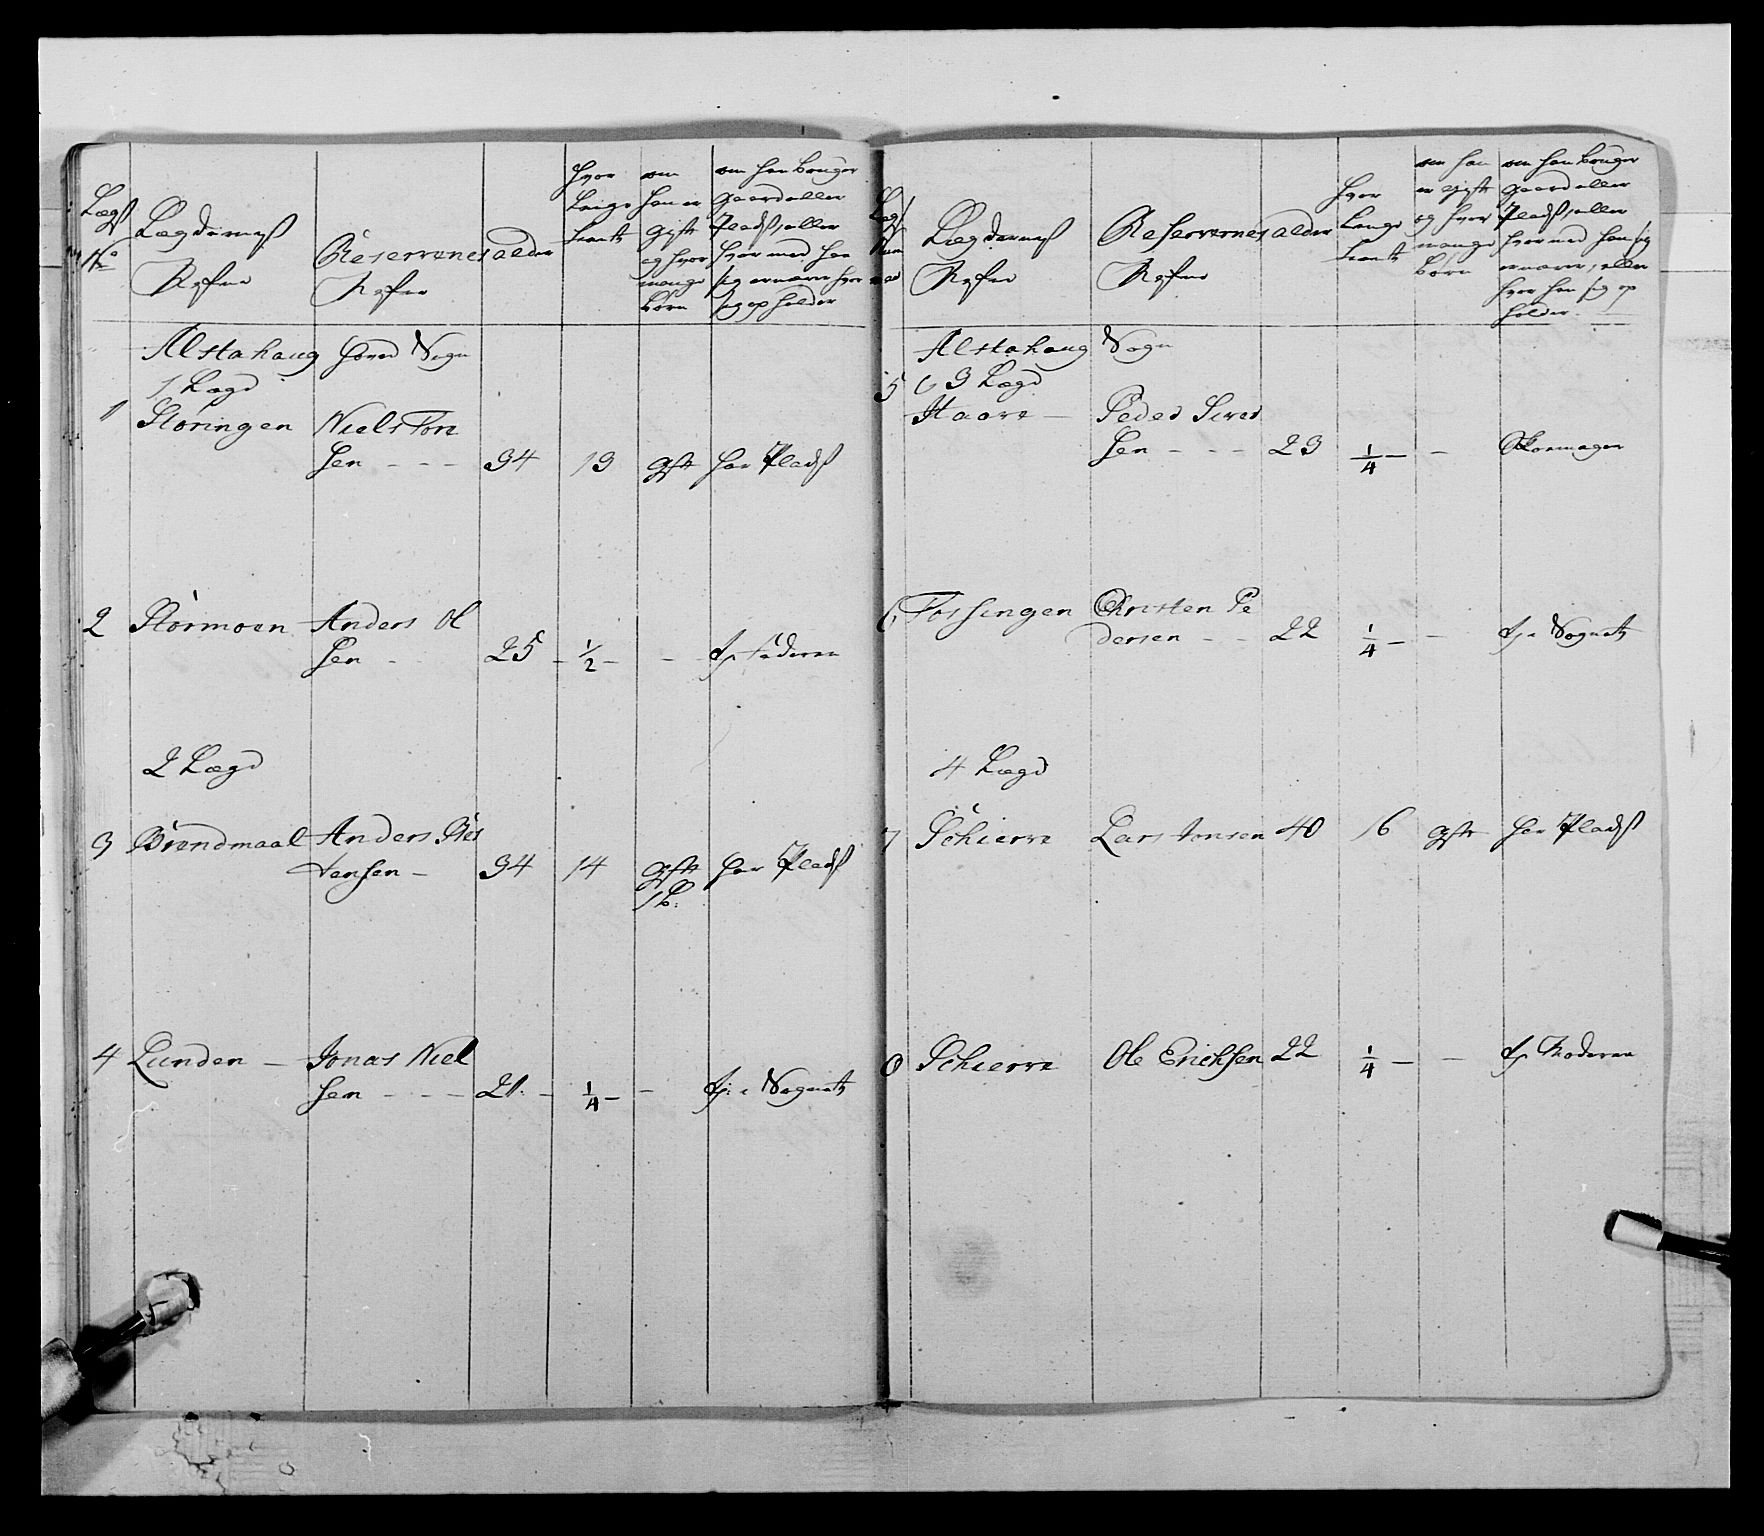 Lægs No
Lægdernes Nafne
Reservenes Nafne
alder
hvor Længe tient
om han er gift og hvor mange børn
om han bruger gaard eller Plads, eller hvor med han sig ernærer hvor sig opholder
Alstahoug hoved Sogn
1 Lægd
1 Storingen Niels Tore
sen - - - 34 13 gift har Plads
2 Stormoen Anders Ol
sen - 25 - 1/2 - - tj. Faderen
2 Lægd
3 Brendmaal Anders Chris
tensen - 34 14 gift har Plads
1 b:
4 Lunden - Jonas Niel
sen - - - 21 - 1/4 - - tj: i Sognet
Lægdernes Nafne
Reservernes Nafne
alder
hvor Længe tient
om han er gift og hvor mange børn
om han bruger gaard eller Plads, eller hvor med han sig ernærer, eller hvor han sig op holder
Alstahoug Sogn
3 Lægd
5 Haare - Peder Siver
sen - - - 23 1/4 - - Skoemager
6 Forsingen Christen Pe
dersen - - 22 1/4 - - tj. i Sognet
4 Lægd
7 Schierve Lars Amsen 40 16 gift har Plads
8 Schierve Ole Erichsen 22 1/4 - - tj. Moderen